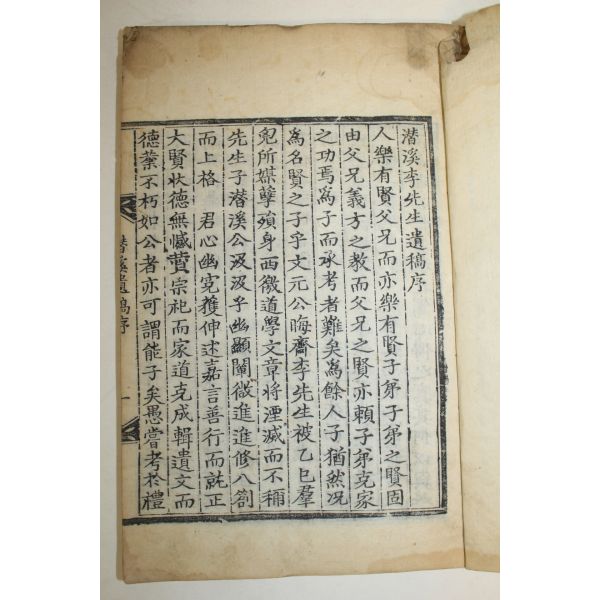 潜溪李先生遺稿序
人樂有賢父兄而亦樂有賢子弟子弟之賢固
由父兄義方之教而父兄之賢亦頼子弟克家
之功焉為子而承考者難矣為餘人子猶然况
為名賢之子乎文元公晦齋李先生被乙巳羣
兇所媒孽殞身西徼道學文章將湮滅而不稱
先生子潜溪公汲汲乎幽顯闡微進進修八劄
而上格 君心幽寃獲伸述嘉言善行而就正
大賢狀德無憾賛宗祀而家道克成輯遺文而
德業不朽如公者亦可謂能子矣愚嘗考於禮
潜溪遺稿序 一